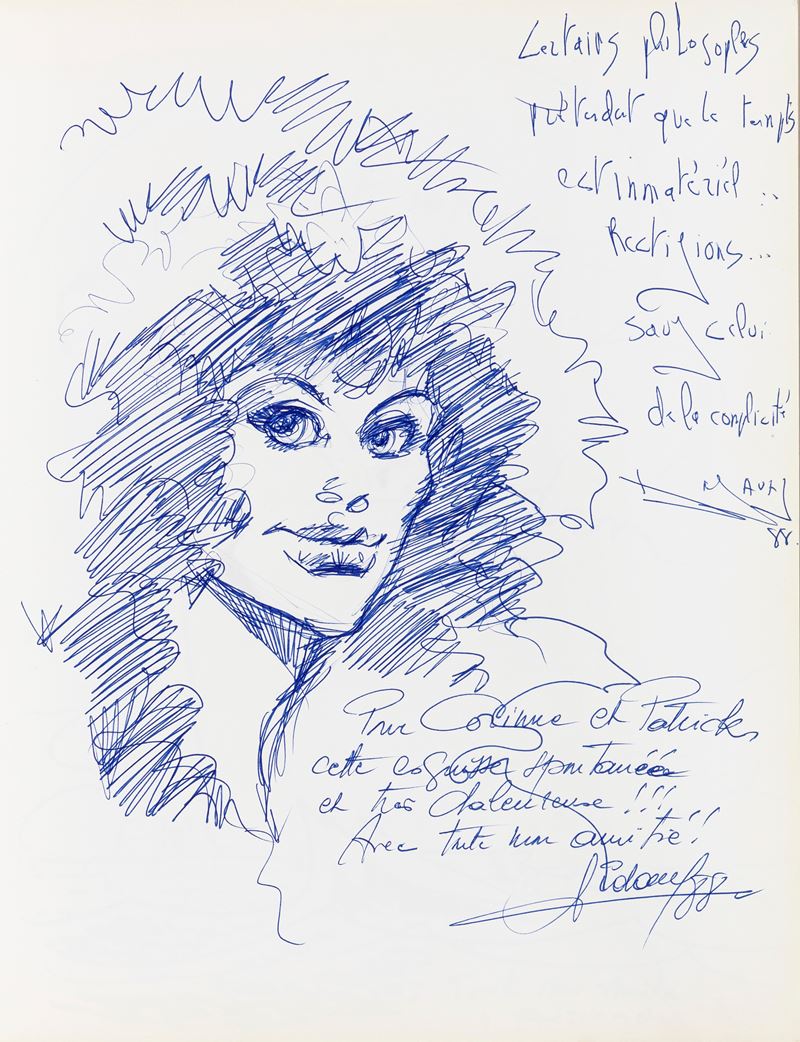 Certains philosophes
prétendat que le temps
est inmatériel ..
Rectifions...
sauf celui
de la complicité
88.
Pour Corinne et Patrick,
cette esquisse spontanéée
et très chaleureuse !!!
Avec toute mon amitié!!
88